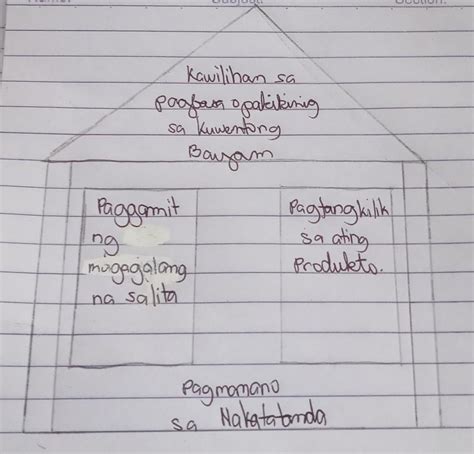 Kawilihan sa
pagbasa o pakikinig
sa kuwentong
Bayan
Paggamit
ng
magagalang
na salita
Pagtangkilik
sa ating
Produkto.
Pagmamano
sa Nakatatanda